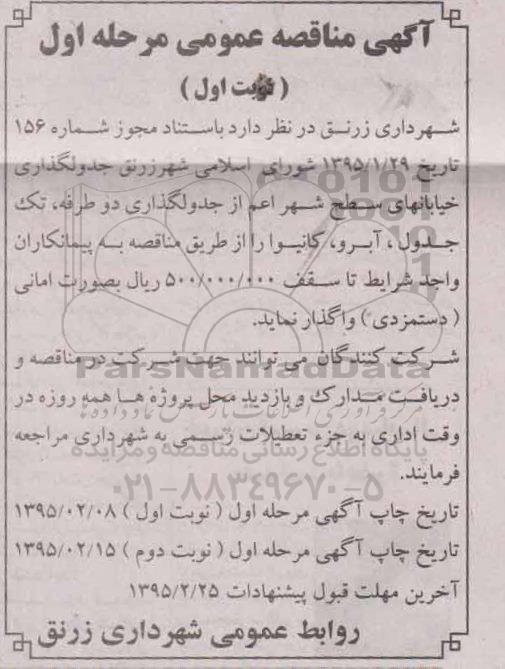 آگهی مناقصه عمومی مرحله اول
( نوبت اول )
شهرداری زرنق در نظر دارد باستناد مجوز شماره ۱۵۶
تاریخ ۱۳۹۵/۱/۲۹ شورای اسلامی شهرزرنق جدولگذاری
خیابانهای سطح شهر اعم از جدولگذاری دو طرفه، تک
جدول، آبرو، کانیوا را از طریق مناقصه به پیمانکاران
واجد شرایط تا سقف ۵۰۰/۰۰۰/۰۰۰ ریال بصورت امانی
( دستمزدی ) واگذار نماید.
شرکت کنندگان می توانند جهت شرکت در مناقصه و
دریافت مدارک و بازدید محل پروژه ها همه روزه در
وقت اداری به جزء تعطیلات رسمی به شهرداری مراجعه
فرمایند.
تاریخ چاپ آگهی مرحله اول ( نوبت اول ) ۱۳۹۵/۰۲/۰۸
تاریخ چاپ آگهی مرحله اول ( نوبت دوم ) ۱۳۹۵/۰۲/۱۵
آخرین مهلت قبول پیشنهادات ۱۳۹۵/۲/۲۵
روابط عمومی شهرداری زرنق
ParsNamadData
پایگاه اطلاع رسانی مناقصه و مزایده
۰۲۱-۸۸۳۴۹۶۷۰-۵